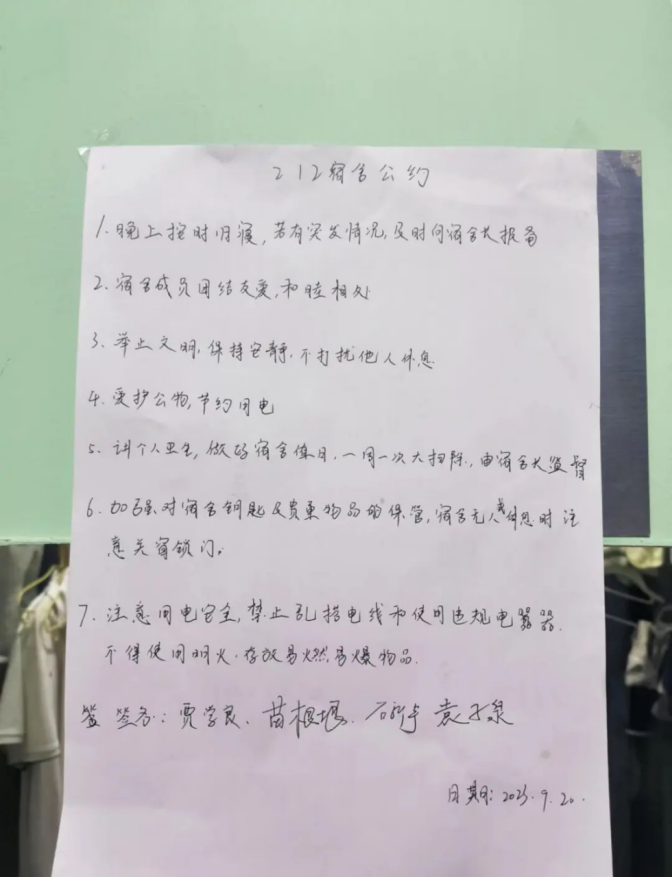 212宿舍公约
1. 晚上按时归寝,若有突发情况,及时向宿舍长报备
2. 宿舍成员团结友爱,和睦相处
3. 举止文明,保持安静.不打扰他人休息
4. 爱护公物,节约用电
5. 讲个人卫生,做好宿舍值日.一周一次大扫除,由宿舍长监督
6. 加强对宿舍钥匙及贵重物品的保管,宿舍无人或休息时注
意关窗锁门。
7. 注意用电安全,禁止乱搭电线和使用违规电器.
不得使用明火.存放易燃,易爆物品.
签名:贾学良、苗根
日期:2025.9.20.